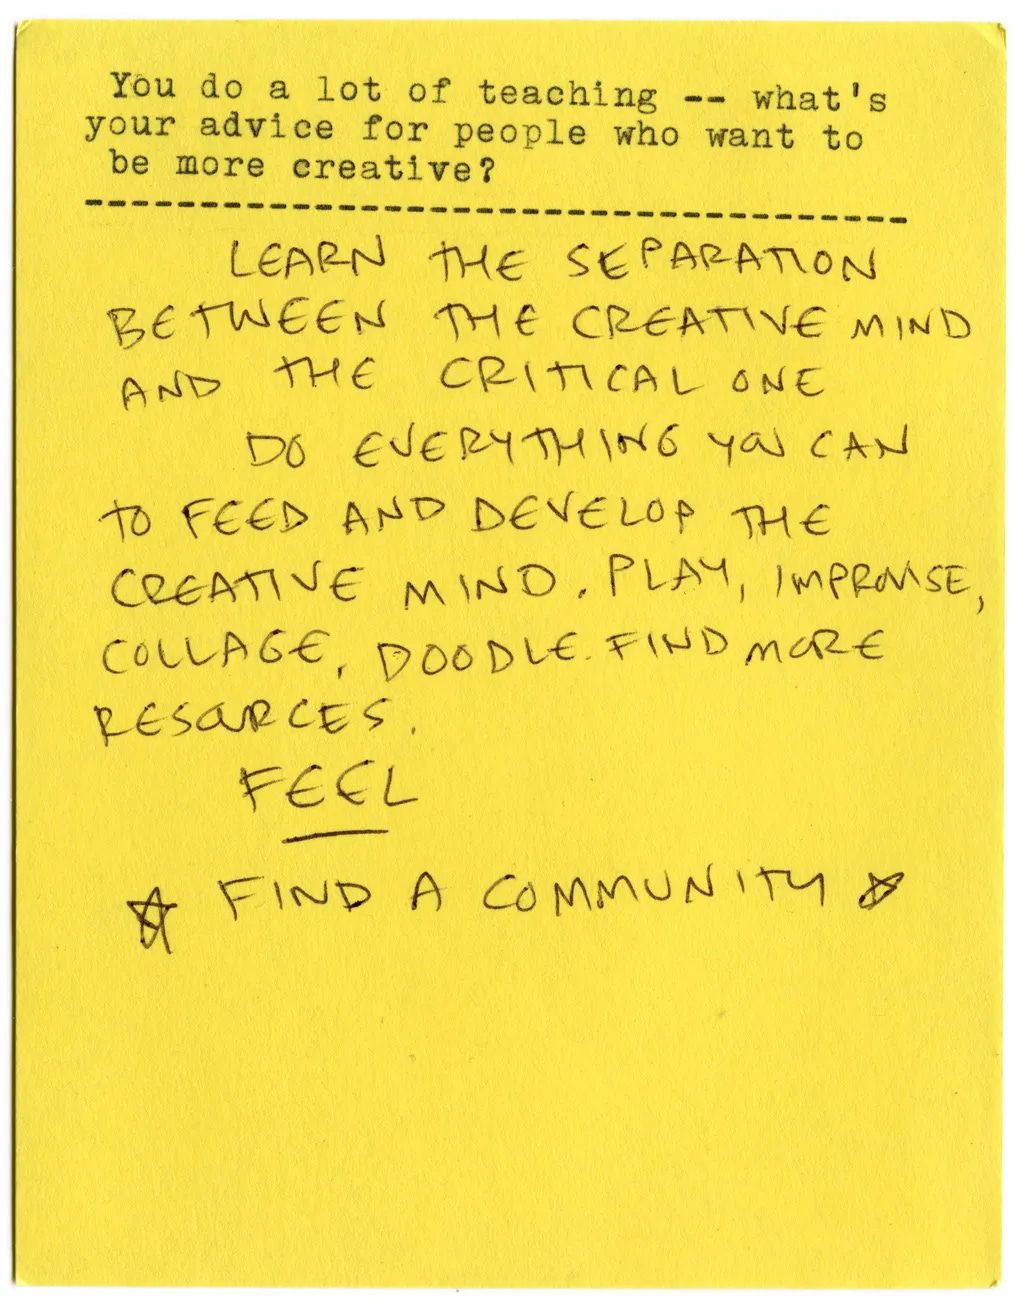 You do a lot of teaching -- what's
your advice for people who want to
be more creative?
------------------------------------
LEARN THE SEPARATION
BETWEEN THE CREATIVE MIND
AND THE CRITICAL ONE
DO EVERYTHING YOU CAN
TO FEED AND DEVELOP THE
CREATIVE MIND. PLAY, IMPROVISE,
COLLAGE, DOODLE. FIND MORE
RESOURCES.
FEEL
☆ FIND A COMMUNITY ☆